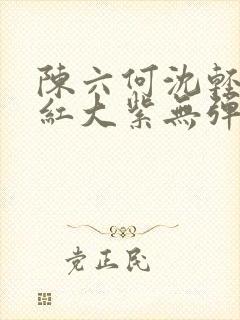 陳六何沈輕
紅大紫無彈
党正民